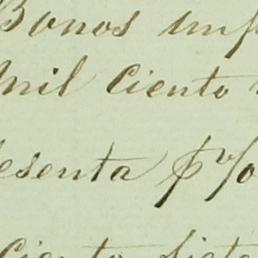 Bonos imp
mil ciento
esenta p%
Ciento Siete